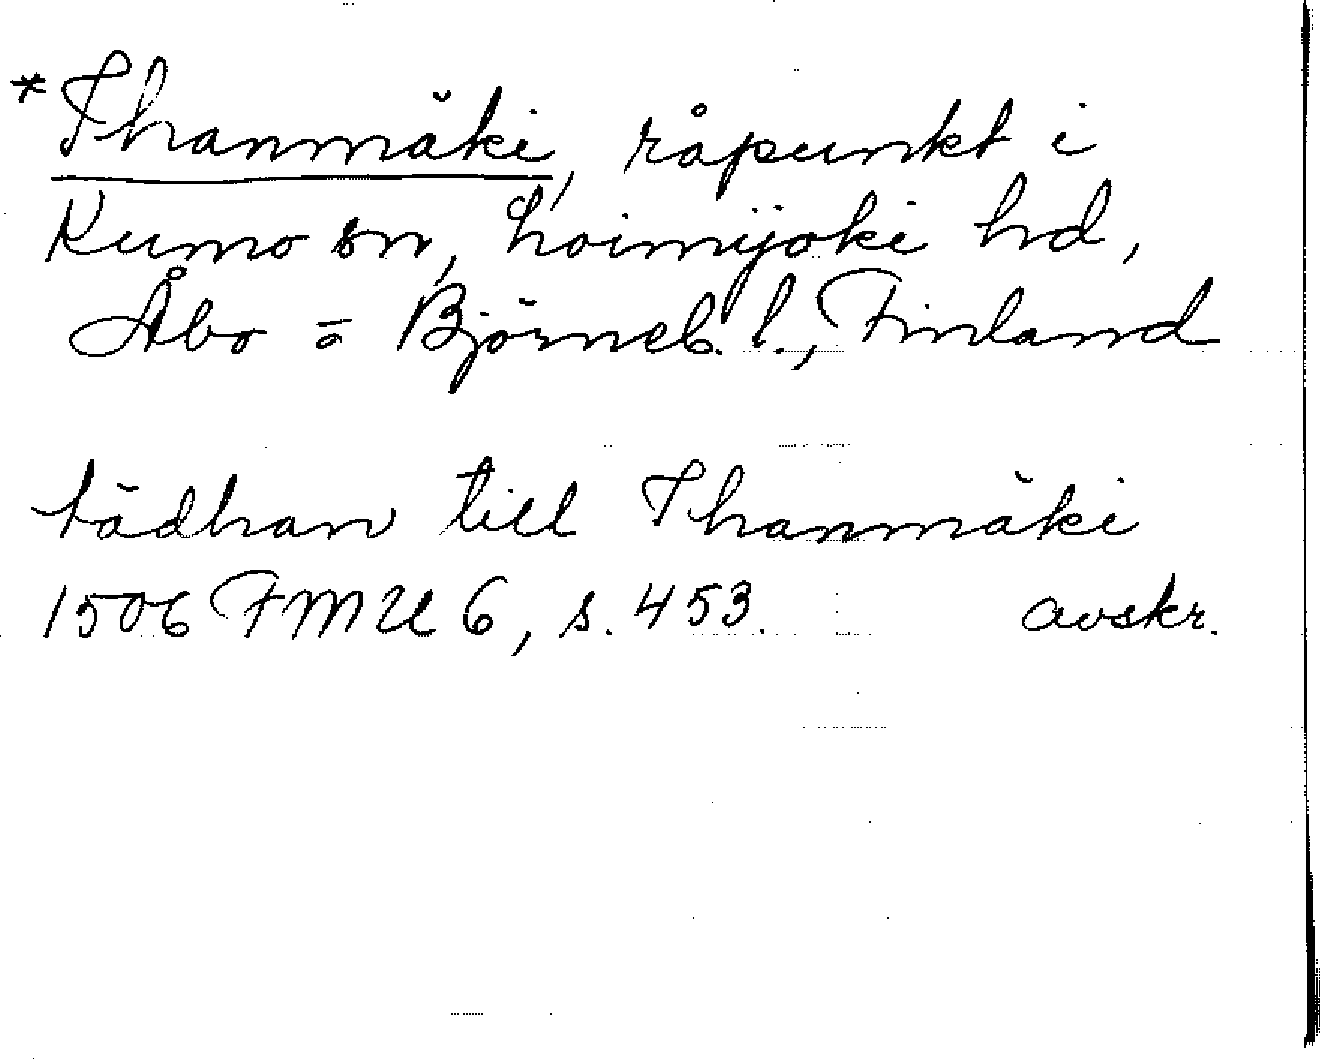 *Thanmäki, råpunkt i
Kumo sn, Loimijoki hd,
Åbo o Björneb. l., Finland
tädhan till Thanmäki
1506 FMU 6, s. 453. avskr.